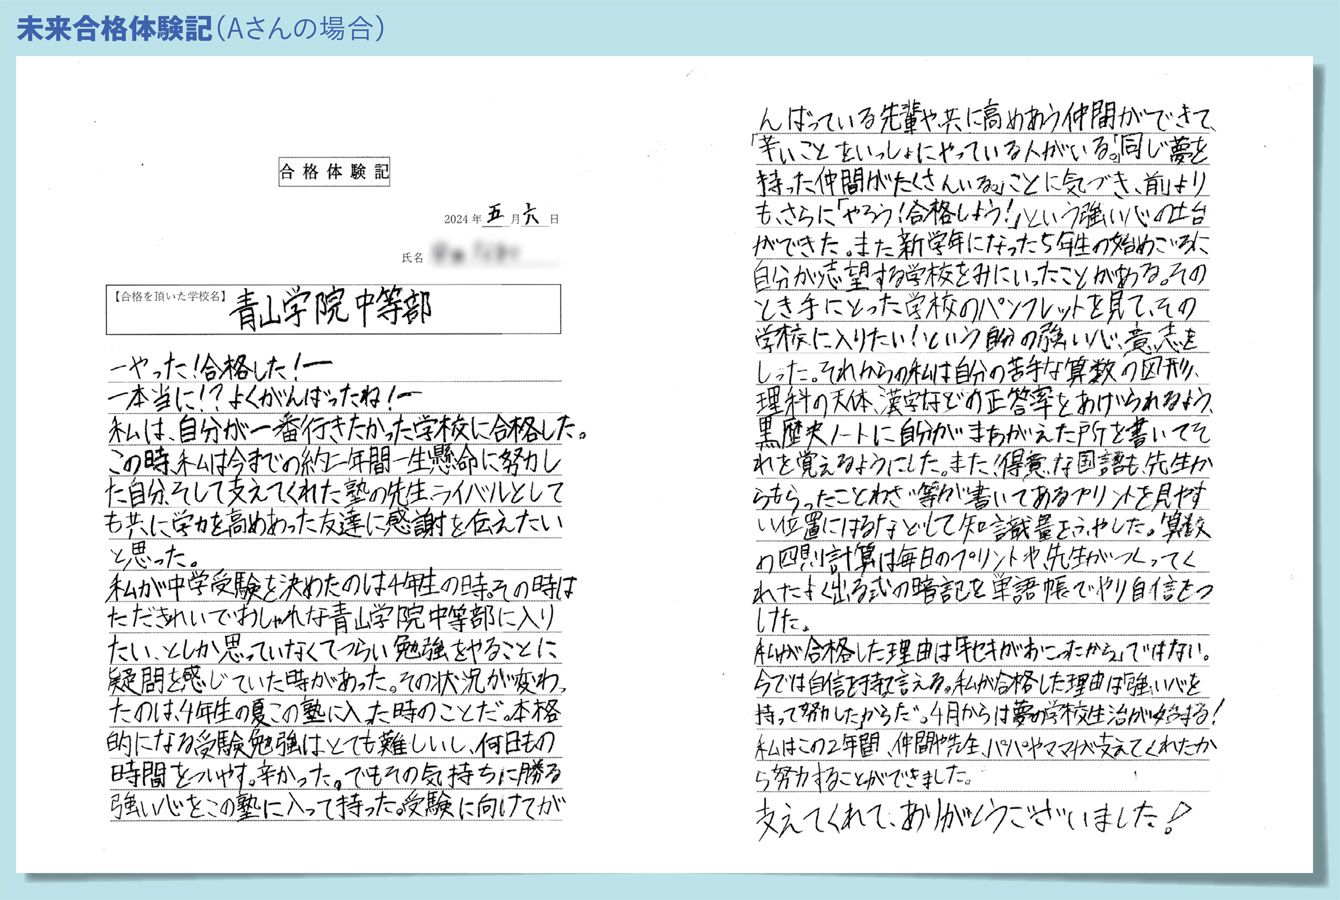 未来合格体験記(Aさんの場合)
合格体験記
2024年五月六日
氏名
【合格を頂いた学校名】青山学院中等部
ーやった!合格した!ー
ー本当に!?よくがんばったね!ー
私は、自分が一番行きたかった学校に合格した。
この時、私は今までの約二年間一生懸命に努力し
た自分、そして支えてくれた塾の先生、ライバルとして
も共に学力を高めあった友達に感謝を伝えたい
と思った。
私が中学受験を決めたのは4年生の時。その時は
ただきれいでおしゃれな青山学院中等部に入り
たい、としか思っていなくてつらい勉強をやることに
疑問を感じていた時があった。その状況が変わっ
たのは、4年生の夏この塾に入った時のことだ。本格
的になる受験勉強は、とても難しいし、何日もの
時間をついやす。辛かった。でもその気持ちに勝る
強い心をこの塾に入って持った。受験に向けてが
んばっている先輩や、共に高めあう仲間ができて、
「辛いことをいっしょにやっている人がいる。」「同じ夢を
持った仲間がたくさんいる。」ことに気づき、前より
も、さらに「やろう!合格しよう!」という強い心の土台
ができた。また新学年になった5年生の始めごろに
自分が志望する学校をみにいったことがある。その
とき手にとった学校のパンフレットを見て、その
学校に入りたい!という自分の強い心、意志を
しった。それからの私は自分の苦手な算数の図形、
理科の天体、漢字などの正答率をあげられるよう、
黒歴史ノートに自分がまちがえた所を書いてそ
れを覚えるようにした。また、得意な国語も、先生か
らもらったことわざ等が書いてあるプリントを見やす
い位置にはるなどして知識量をふやした。算数
の四則計算は毎日のプリントや、先生がつくってく
れたよく出る式の暗記を単語帳でやり自信をつ
けた。
私が合格した理由は「キセキがおこったから」ではない。
今では自信を持って言える。私が合格した理由は「強い心を
持って努力した」からだ。4月からは夢の学校生活が始まる!
私はこの2年間、仲間や先生、パパやママが支えてくれたか
ら努力することができました。
支えてくれて、ありがとうございました!